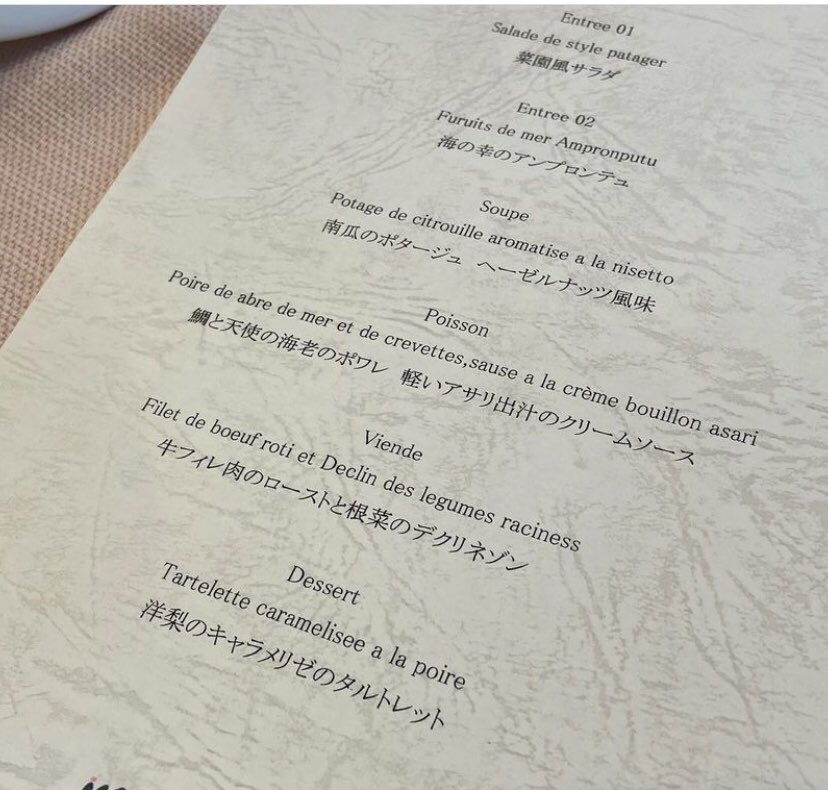 Entree 01
Salade de style patager
菜園風サラダ
Entree 02
Furuits de mer Ampronputu
海の幸のアンプロンテュ
Soupe
Potage de citrouille aromatise a la nisetto
南瓜のポタージュ ヘーゼルナッツ風味
Poisson
Poire de abre de mer et de crevettes,sause a la crème bouillon asari
鯛と天使の海老のポワレ 軽いアサリ出汁のクリームソース
Viende
Filet de boeuf roti et Declin des legumes raciness
牛フィレ肉のローストと根菜のデクリネゾン
Dessert
Tartelette caramelisee a la poire
洋梨のキャラメリゼのタルトレット